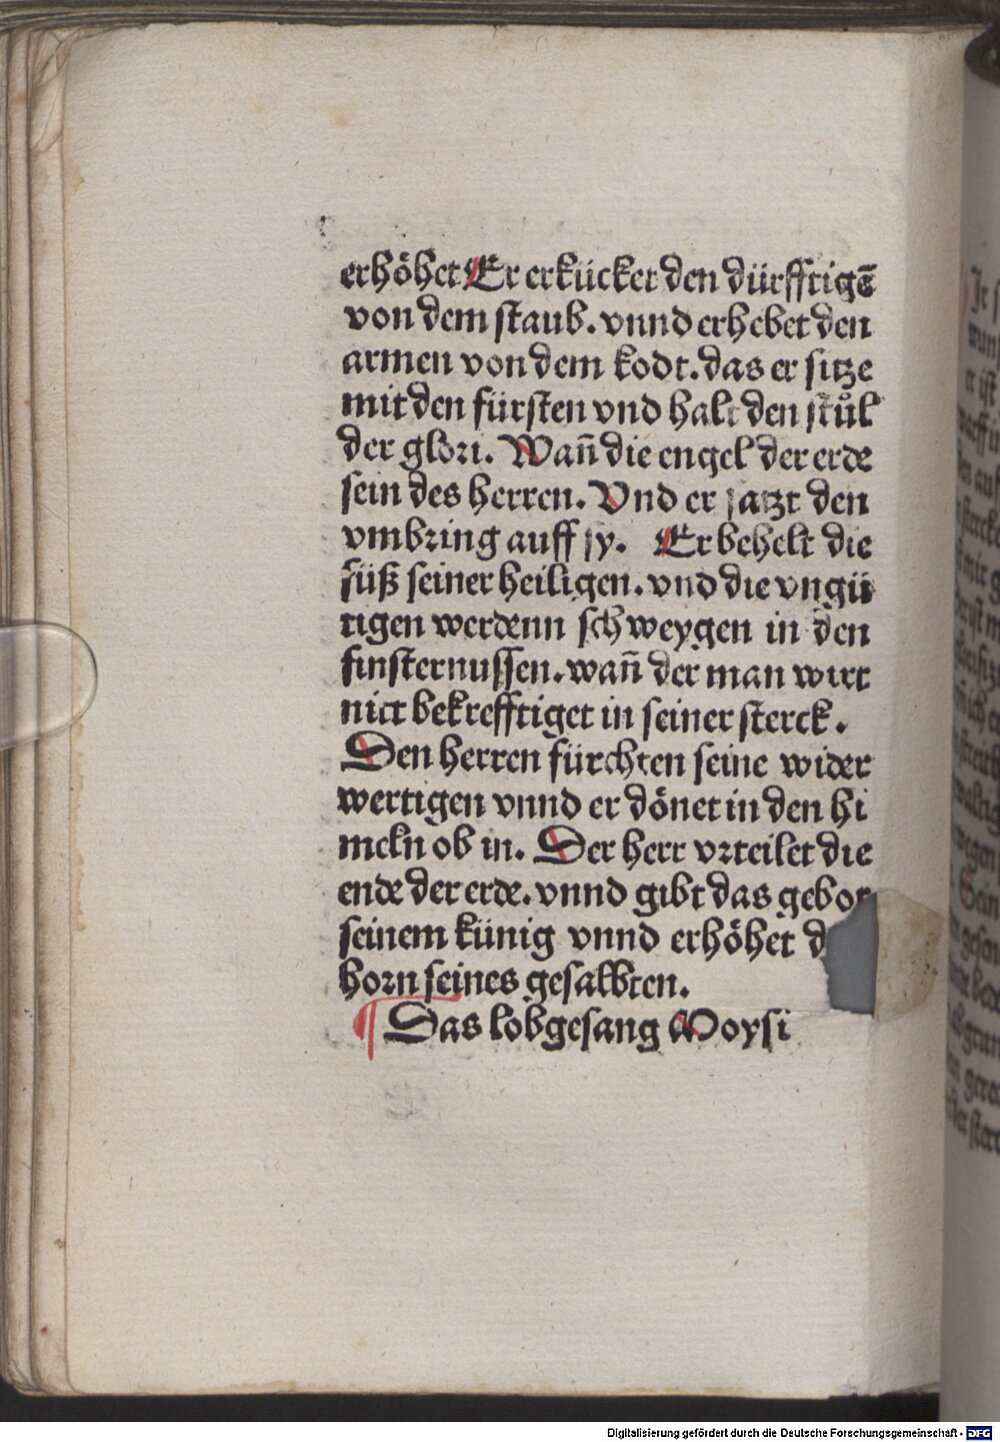 erhöhet Er erkücket den dürfftigē
von dem staub. vnnd erhebet den
armen von dem kodt. das er sitze
mit den fürsten vnd halt den stůl
der glori. Wañ die engel der erde
sein des herren. Vnd er satzt den
vmbring auff sy. Er behelt die
füß seiner heiligen. vnd die vngü
tigen werdenn schweygen in den
finsternussen. wañ der man wirt
nict bekrefftiget in seiner sterck.
Den herren fürchten seine wider
wertigen vnnd er dönet in den hi
meln ob in. Der herr vrteilet die
ende der erde. vnnd gibt das gebot
seinem künig vnnd erhöhet
horn seines gesalbten.
¶ Das lobgesang Moysi
Digitalisierung gefördert durch die Deutsche Forschungsgemeinschaft - DFG